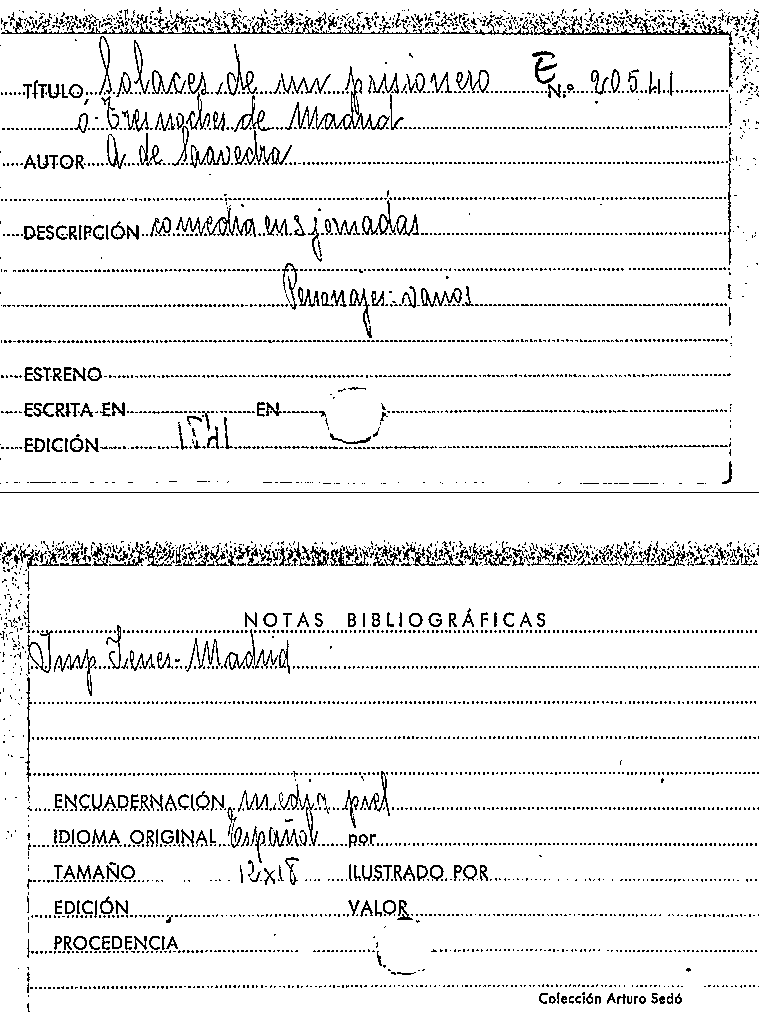 TÍTULO Solaces de un prisionero E N.º 20541
ó Tres noches de Madrid
AUTOR A de Saavedra
DESCRIPCIÓN comedia en 3 jornadas
Personajes: varios
ESTRENO
ESCRITA EN EN
EDICIÓN 1841
NOTAS BIBLIOGRÁFICAS
Imp Yenes - Madrid
ENCUADERNACIÓN media piel
IDIOMA ORIGINAL Español por
TAMAÑO 12x18 ILUSTRADO POR
EDICIÓN VALOR
PROCEDENCIA
Colección Arturo Sedó